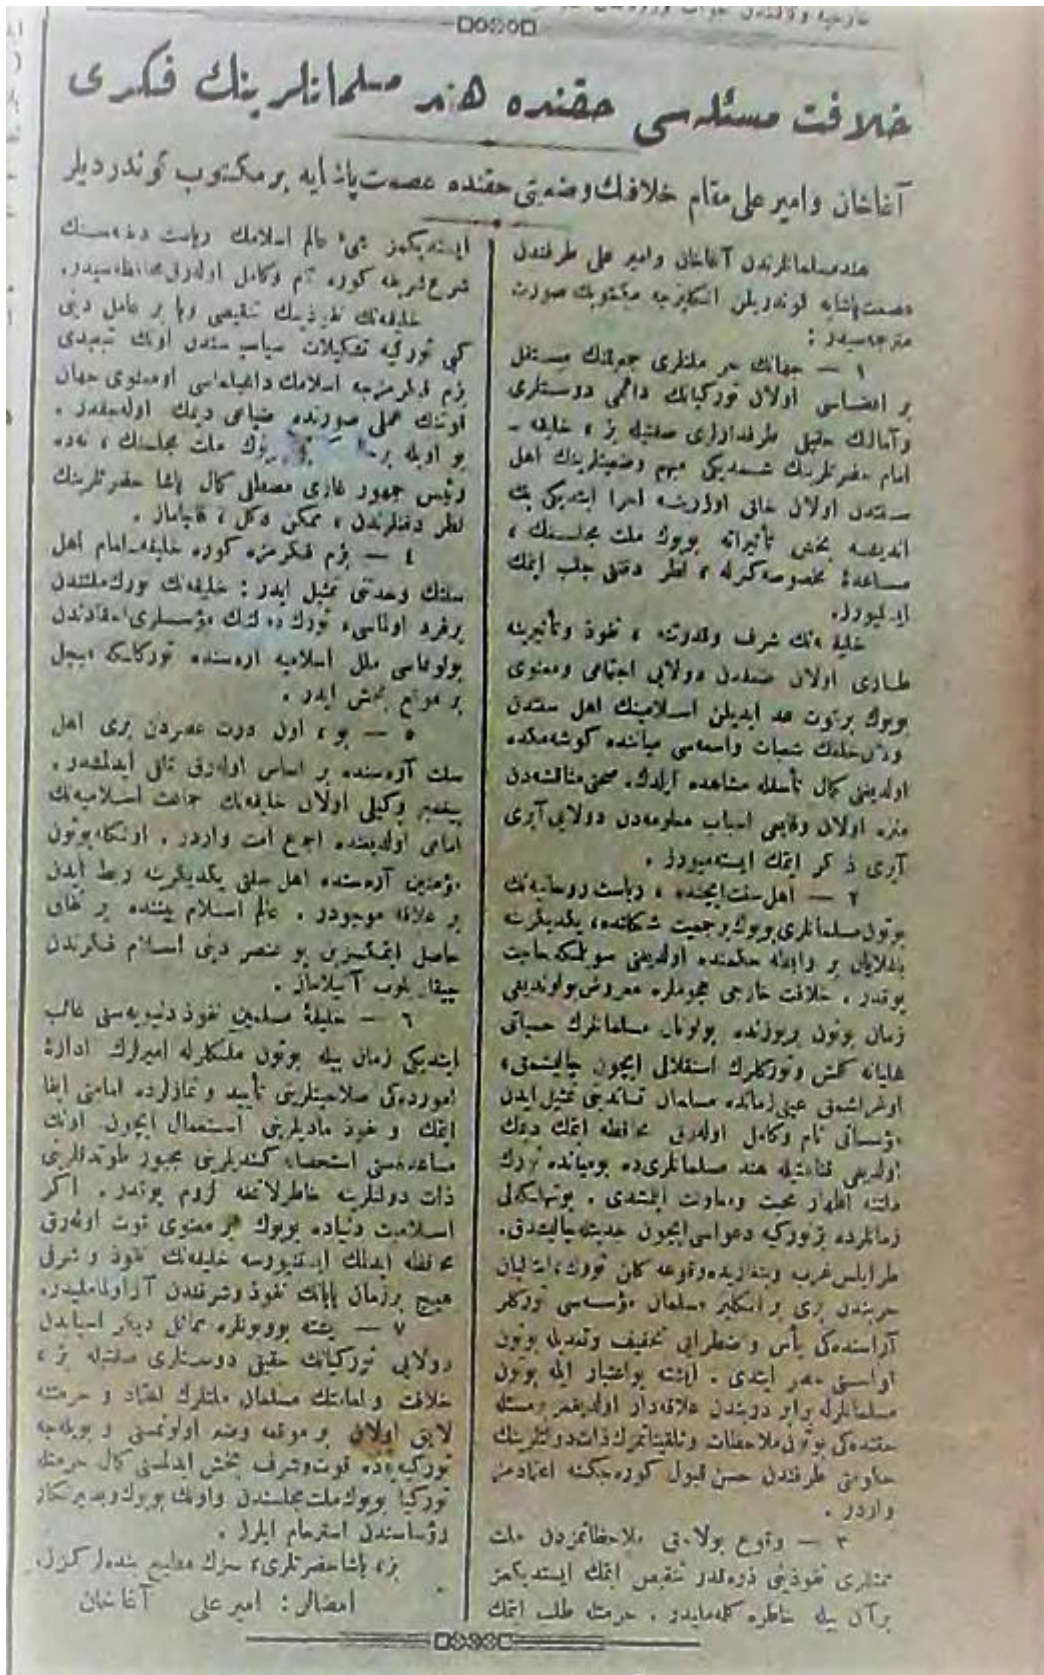 خلافت مسئله‌سی حقنده هند مسلمانلرینك فكری
آغاخان و امیر علی مقام خلافك وضعیتی حقنده عصمت پاشایه بر مكتوب كوندردیلر
هند مسلمانلرندن آغاخان و امیر علی طرفندن
عصمت پاشایه كوندریلن انكلیزجه مكتوبك صورت
مترجمه‌سیدر :
١ — جهانك حر ملتلری جمعیتنك مستقل
بر اعضاسی اولان توركیانك دائمی دوستلری
وآمالك حقیقی طرفدارلری صفتیله بز ، خلیفه -
امام حضرتلرینك شمدیكی مبهم وضعیتلرینك اهل
سنتدن اولان خلق اوزرینه اجرا ایتدیكی پك
اندیشه بخش تأثیراته بویوك ملت مجلسنك ،
مساعدهٔ مخصوصه‌كزله ، نظر دقتنی جلب ایتمك
ایستیورز.
خلیفه‌نك شرف وقدرتنه ، نفوذ وتأثیرینه
طاری اولان ضعفدن دولایی اجتماعی ومعنوی
بویوك بر قوت عد ایدیلن اسلامیتك اهل سنتدن
اولان خلقك شعبات واسعه‌سی میاننده كوشه‌مكده
اولدیغنی كمال تأسفله مشاهده ایلدك. صحتی مناقشه‌دن
منزه اولان وقایعی اسباب معلومه‌دن دولایی آیری
آیری ذكر ایتمك ایسته‌میورز .
٢ — اهل سنت ایچنده ، ریاست روحانیه‌نك
بوتون مسلمانلری بویوك بر جمعیت شكلنده، یكدیگرینه
باغلایان بر رابطه حكمنده اولدیغنی سویلمكه حاجت
یوقدر . خلافت خارجی هجوملره معروض بولوندیغی
زمان بوتون یر یوزنده بولونان مسلمانلرك حسیاتی
غلیانه كلمش وتوركلرك استقلالی ایچون چالیشمق،
اوغراشمق عینی زمانده مسلمان تساندینی تمثیل ایدن
مؤسساتی تام وكامل اوله‌رق محافظه ایتمك دیمك
اولدیغی قناعتیله هند مسلمانلری ده بومیانده تورك
ملتنه اظهار محبت ومعاونت ایتمشدی . بوتهلكه‌لی
زمانلرده بز توركیه دعواسی ایچون جدیتله چالیشدق.
طرابلس غرب وبنغازیده وقوعه كلن تورك، ایتالیان
حربندن بری بر انكلیز مسلمان مؤسسه‌سی توركلر
آراسنده‌كی یأس و اضطرابی تخفیف وتعدیله بوتون
مسلمانلرله برابر دریندن علاقه‌دار اولدیغمز بر مسئله
حقنده‌كی بوتون ملاحظات وتلقیناتمزك ذات دولتلرینك
حكومتی طرفندن حسن قبول كوره‌جكنه اعتمادمز
واردر .
٣ — وقوع بولاجق ملاحظاتمزدن ملت
ممثللری نفوذینی ذره قدر تنقیص ایتمك ایستدیكمز
بر آن بیله خاطره كلمه‌ملیدر . حرمتله طلب ایتمك
ایستدیكمز شیء عالم اسلامك ریاست دینیه‌سنك
شرع شریفه كوره تام وكامل اوله‌رق محافظه‌سیدر.
خلیفه‌نك نفوذینك تنقیصی ویا بر عامل دینی
كبی توركیه تشكیلات سیاسیه‌سندن اونك تبعیدی
بزم فكرمزجه اسلامك داغیلماسی او معنوی جهان
قوتنك عملی صورتده ضیاعی دیمك اوله‌جقدر .
رئیس جمهور غازی مصطفی كمال پاشا حضرتلرینك
نظر دقتلرندن ، ممكن دكل ، قاچاماز .
٤ — بزم فكرمزه كوره خلیفه-امام اهل
سنتك وحدتنی تمثیل ایدر : خلیفه‌نك تورك ملتندن
بر فرد اولماسی، تورك دولتنك مؤسسلری احفادندن
بولونماسی ملل اسلامیه آره‌سنده توركیایه مبجل
بر موقع بخش ایدر .
٥ — بو ، اون درت عصردن بری اهل
سنت آره‌سنده بر اساس اوله‌رق تلقی ایدلمشدر .
پیغمبر وكیلی اولان خلیفه‌نك جماعت اسلامیه‌نك
امامی اولدیغنده اجماع امت واردر . اونكله بوتون
مؤمنین آره‌سنده اهل سنتی یكدیگرینه ربط ایدن
بر علاقه موجوددر . عالم اسلام بیننده بر نفاق
حاصل ایتمكسزین بو عنصر دینی اسلام فكرندن
چیقاریلوب آتیلاماز .
٦ — خلیفهٔ مسلمین نفوذ دنیویه‌سنی غائب
ایتدیكی زمان بیله بوتون ملكلرله امیرلرك ادارهٔ
امورده‌كی صلاحیتلرینی تأیید و نمازلرده امامتی ایفا
ایتمك و نفوذ مادیلرینی استعمال ایچون اونك
مساعده‌سنی استحصاله كندیلرینی مجبور طوتدقلرینی
ذات دولتلرینه خاطرلاتمغه لزوم یوقدر . اكر
اسلامیت دنیاده بویوك بر معنوی قوت اوله‌رق
محافظه ایدلمك ایسته‌نیورسه خلیفه‌نك نفوذ و شرفی
هیچ بر زمان پاپانك نفوذ وشرفندن آز اولماملیدر.
٧ — ایشته بو وبونلره مماثل دیگر اسبابدن
دولایی توركیانك حقیقی دوستلری صفتیله بز ،
خلافت و امامتك مسلمان ملتلرك اعتماد و حرمتنه
لایق اولان بر موقعه وضع اولونمسنی و بویله‌جه
توركیه‌یه ده قوت وشرف بخش ایدلمسنی كمال حرمتله
توركیا بویوك ملت مجلسندن واونك بویوك وبدبیركار
رؤساسندن استرحام ایلرز .
بز، پاشا حضرتلری، سزك مطیع بنده‌لركزز.
امضالر : امیر علی    آغاخان